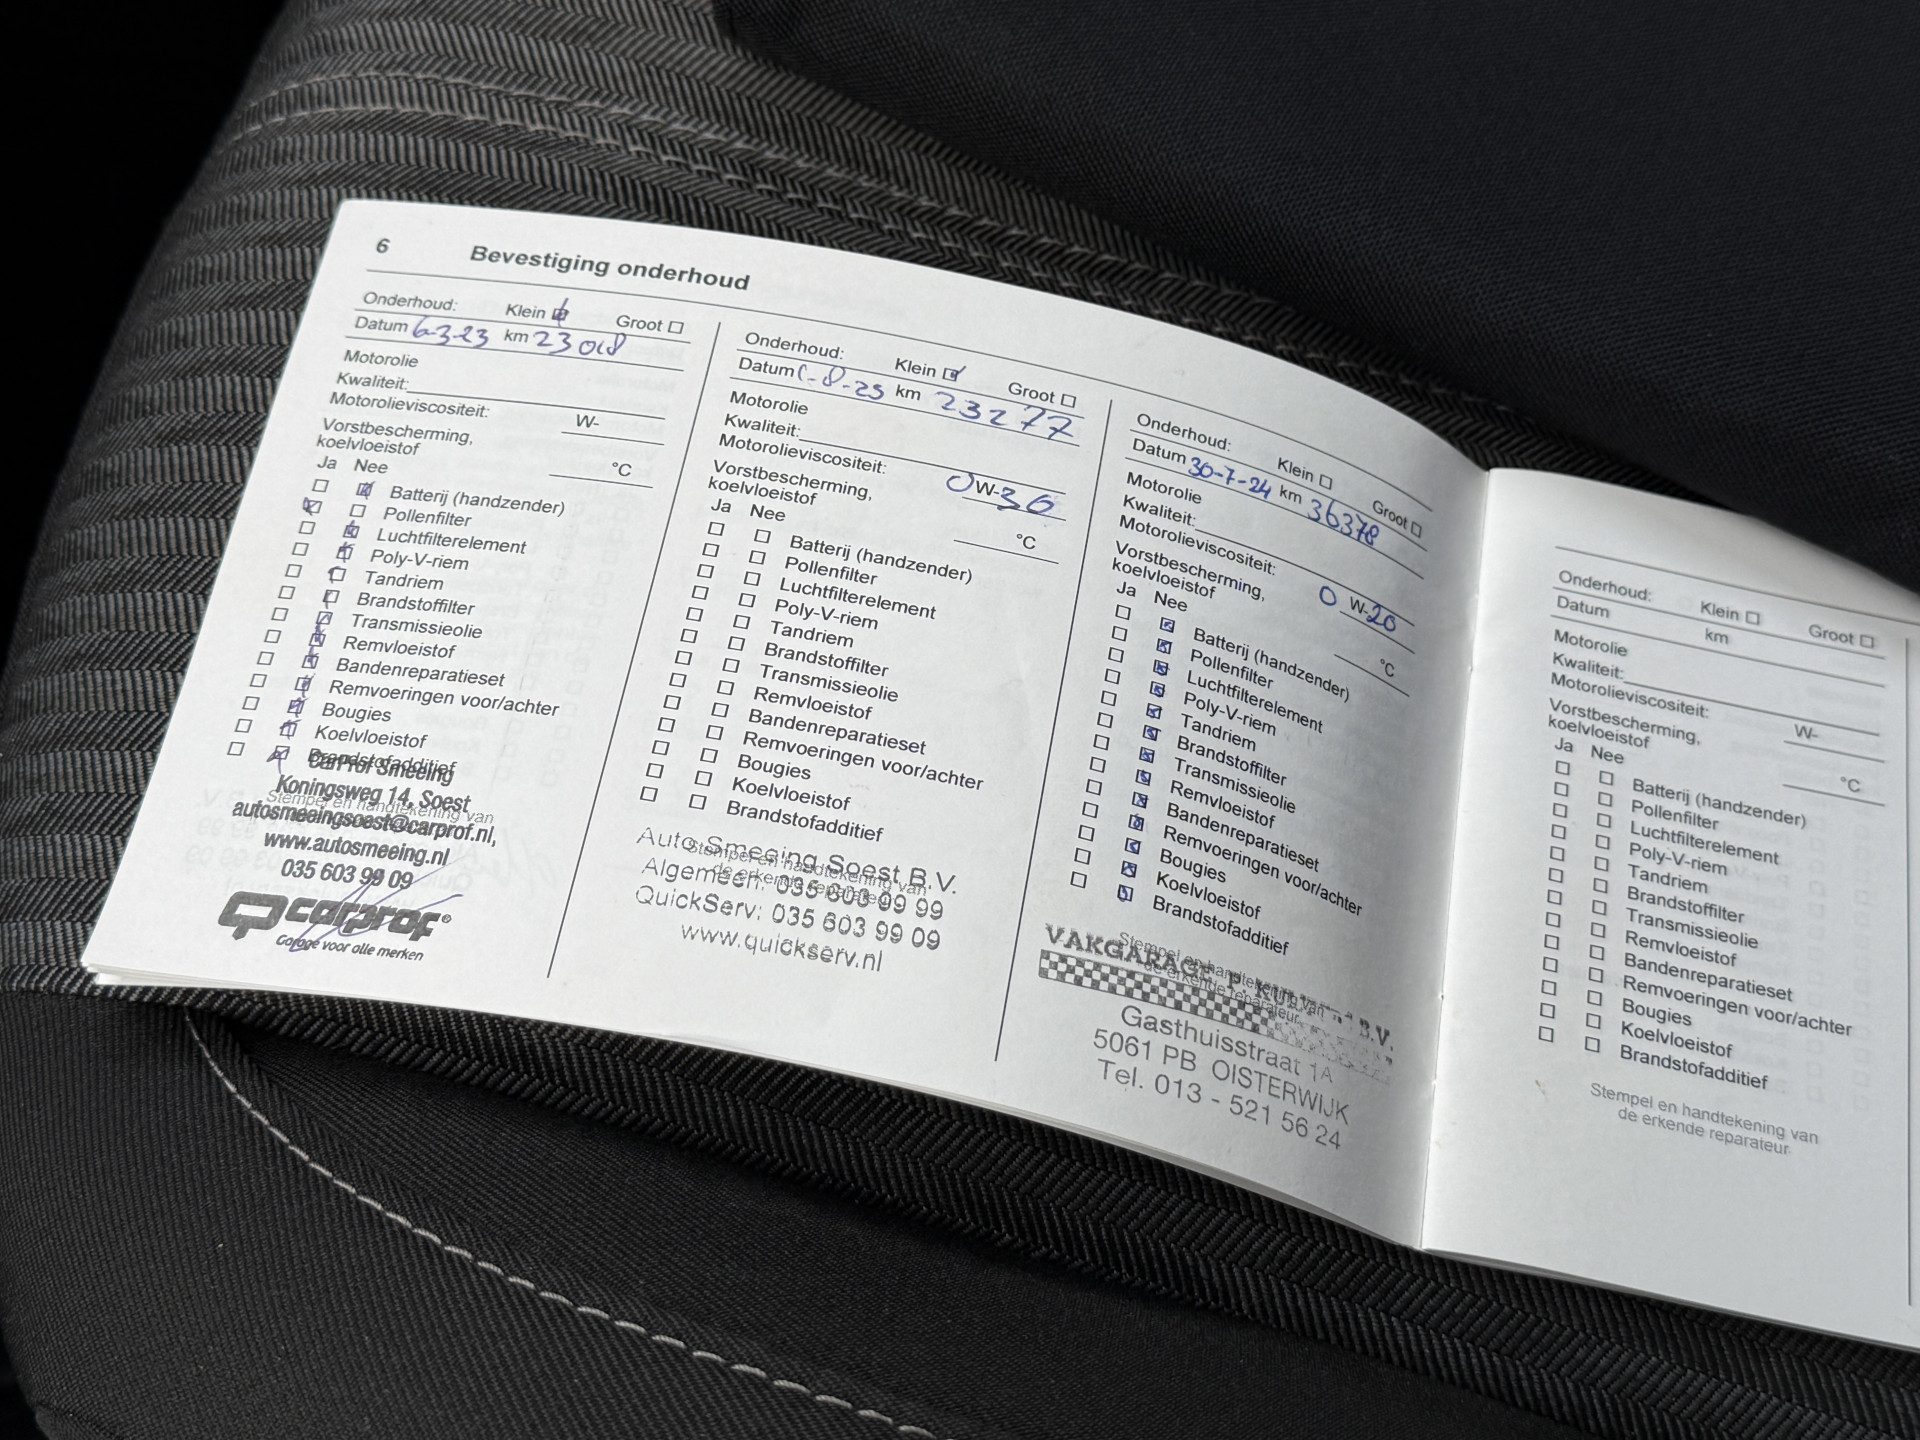 6 Bevestiging onderhoud
Onderhoud: Klein Groot
Datum 6-3-23 km 23018
Motorolie
Kwaliteit:
Motorolieviscositeit: W-
Vorstbescherming,
koelvloeistof °C
Ja Nee
Batterij (handzender)
Pollenfilter
Luchtfilterelement
Poly-V-riem
Tandriem
Brandstoffilter
Transmissieolie
Remvloeistof
Bandenreparatieset
Remvoeringen voor/achter
Bougies
Koelvloeistof
Brandstofadditief
CarProf Smeeing
Koningsweg 14, Soest
Stempel en handtekening van
autosmeeingsoest@carprof.nl,
www.autosmeeing.nl
035 603 99 09
carprof®
Garage voor alle merken
Onderhoud: Klein Groot
Datum -8-23 km 23277
Motorolie
Kwaliteit:
Motorolieviscositeit: 0 W-30
Vorstbescherming,
koelvloeistof °C
Ja Nee
Batterij (handzender)
Pollenfilter
Luchtfilterelement
Poly-V-riem
Tandriem
Brandstoffilter
Transmissieolie
Remvloeistof
Bandenreparatieset
Remvoeringen voor/achter
Bougies
Koelvloeistof
Brandstofadditief
Auto Smeeing Soest B.V.
Stempel en handtekening van
de erkende reparateur
Algemeen: 035 603 99 99
QuickServ: 035 603 99 09
www.quickserv.nl
Onderhoud: Klein Groot
Datum 30-7-24 km 36378
Motorolie
Kwaliteit:
Motorolieviscositeit: 0 W-20
Vorstbescherming,
koelvloeistof °C
Ja Nee
Batterij (handzender)
Pollenfilter
Luchtfilterelement
Poly-V-riem
Tandriem
Brandstoffilter
Transmissieolie
Remvloeistof
Bandenreparatieset
Remvoeringen voor/achter
Bougies
Koelvloeistof
Brandstofadditief
Stempel en handtekening van
de erkende reparateur
VAKGARAGE P. B.V.
Gasthuisstraat 1A
5061 PB OISTERWIJK
Tel. 013 - 521 56 24
Onderhoud: Klein Groot
Datum km
Motorolie
Kwaliteit:
Motorolieviscositeit: W-
Vorstbescherming,
koelvloeistof °C
Ja Nee
Batterij (handzender)
Pollenfilter
Luchtfilterelement
Poly-V-riem
Tandriem
Brandstoffilter
Transmissieolie
Remvloeistof
Bandenreparatieset
Remvoeringen voor/achter
Bougies
Koelvloeistof
Brandstofadditief
Stempel en handtekening van
de erkende reparateur